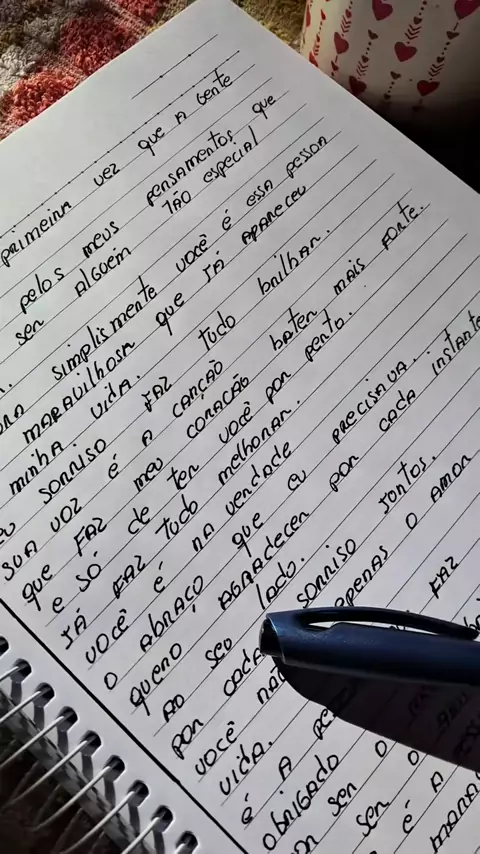 primeira vez que a gente
pelos meus pensamentos que
ser alguém tão especial
simplismente você é essa pessoa
maravilhosa que já apareceu
minha vida.
sorriso faz tudo brilhar.
sua voz é a canção
que faz meu coração bater mais forte.
e só de ter você por perto.
já faz tudo melhorar.
você é na verdade
o abraço que eu precisava.
quero agradecer por cada instante
ao seu lado.
por cada sorriso juntos.
você não apenas o amor
vida. faz
é a
obrigado
ser o
ser o
é a